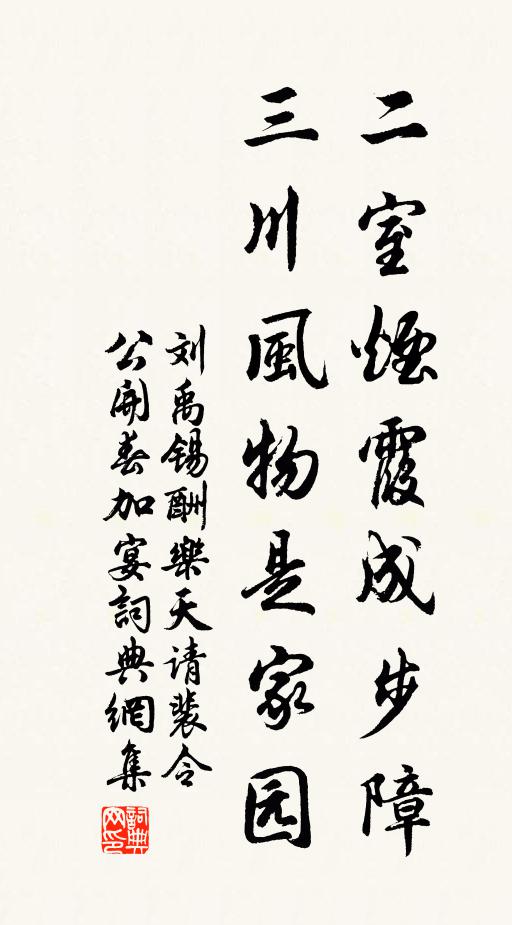 二室煙霞成步障
三川風物是家园
刘禹锡酬樂天请裴令
公開春加宴詞典網集
詞典网印